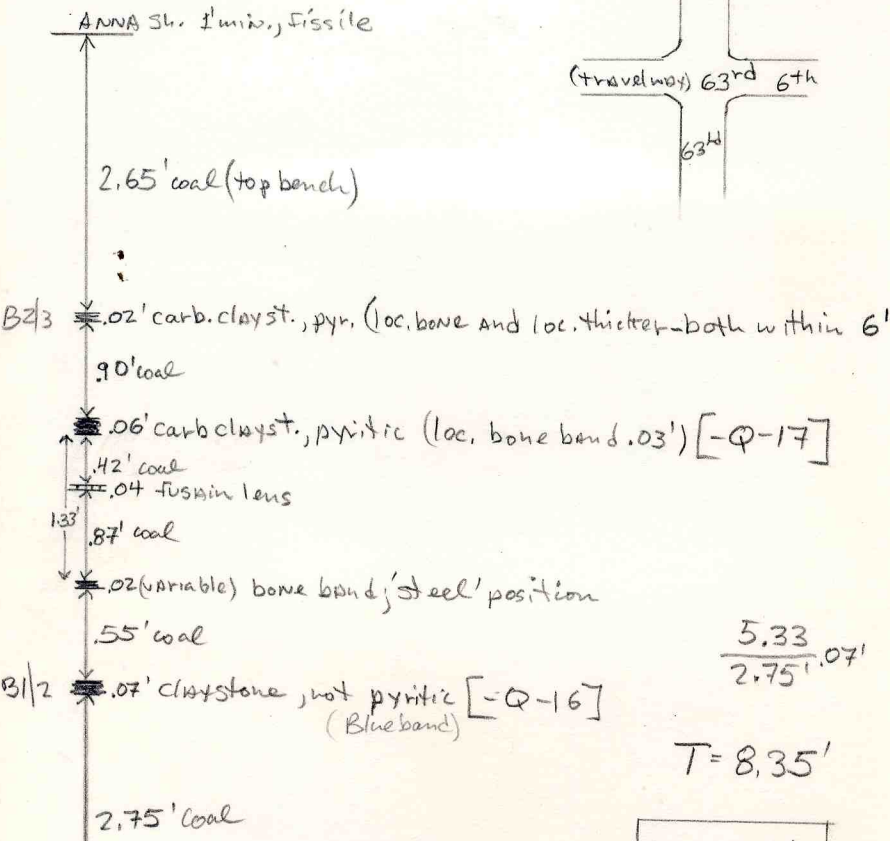 ANNA Sh. 1'min., fissile
(travelway) 63rd 6th
63rd
2.65' coal (top bench)
B2/3 .02' carb. clayst., pyr. (loc. bone and loc. thicker - both within 6'
.90' coal
.06' carb clayst., pyritic (loc. bone band .03') [-Q-17]
.42' coal
.04 fusain lens
1.33'
.87' coal
.02 (variable) bone band; 'steel' position
.55' coal
5.33
2.75' .07'
B1/2 .07' claystone, not pyritic [-Q-16]
(Blueband)
T= 8.35'
2.75' coal